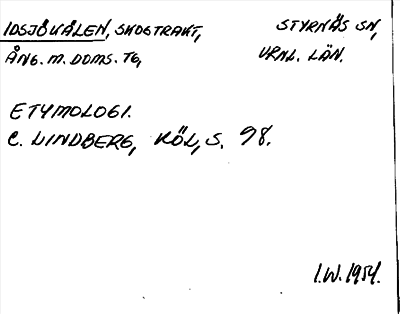 IDSJÖKÅLEN, SKOGTRAKT, STYRNÄS SN,
ÅNG. M. DOMS. TG, VRNL. LÄN.
ETYMOLOGI.
C. LINDBERG, KÖL, S. 98.
I.W. 1954.